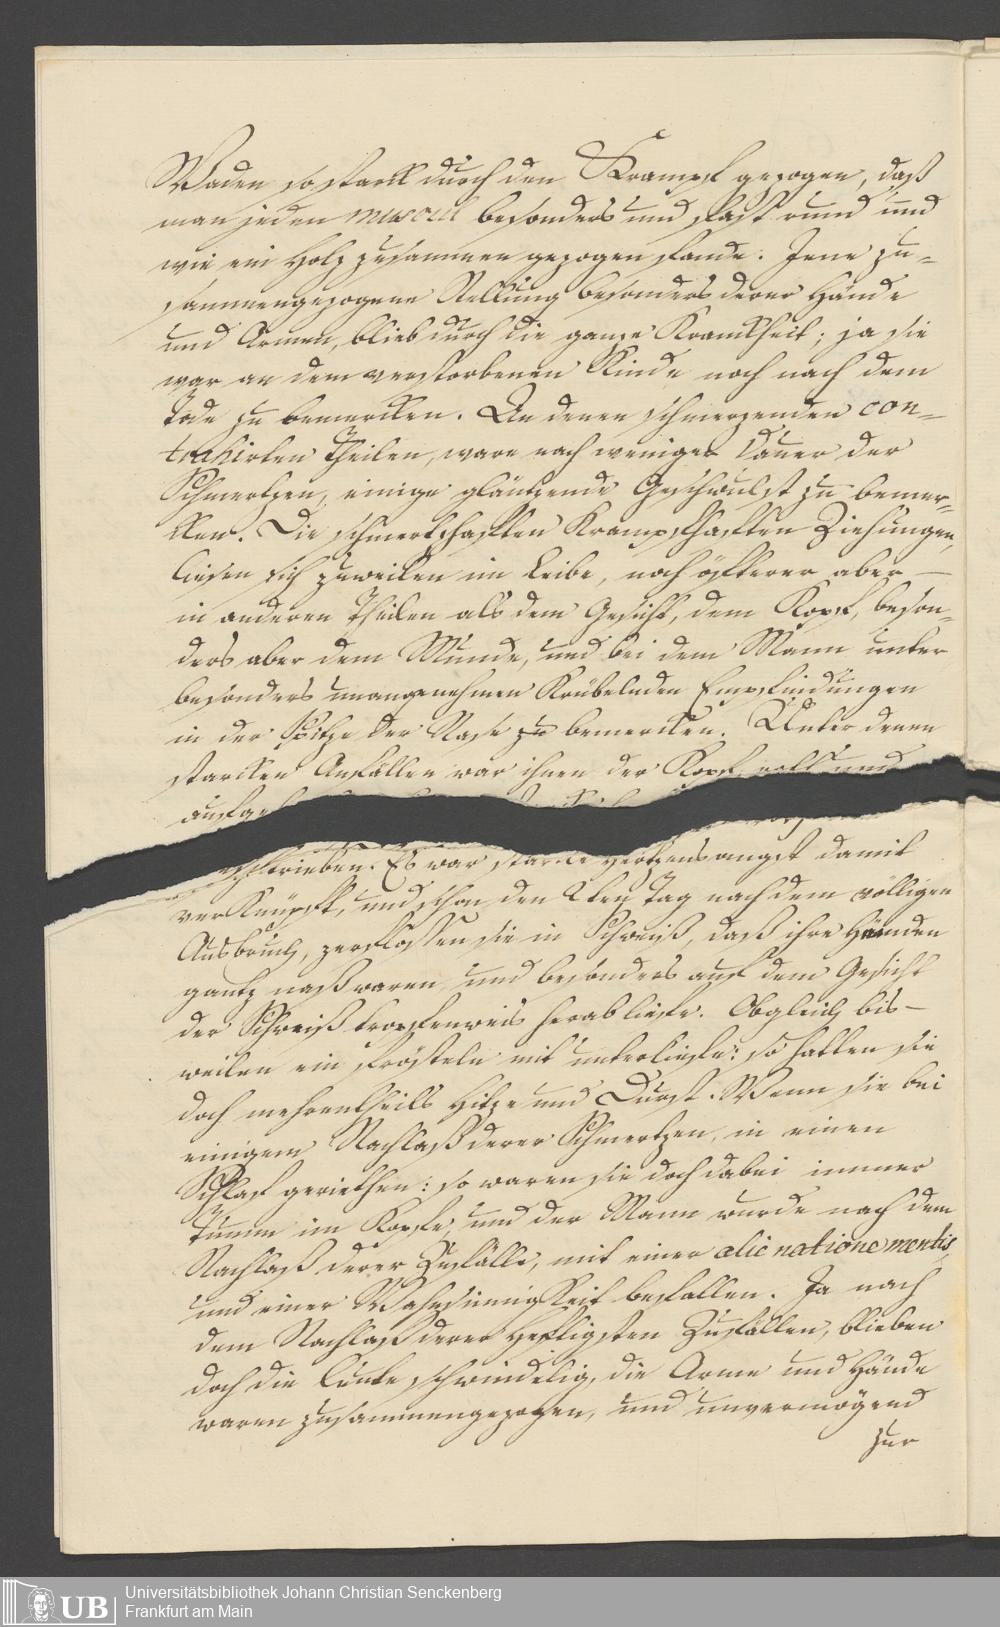 Waden so starck durch den Krampf gezogen, daß
man jeden muscul besonders und fast rund und
wie ein Holz zusammen gezogen fande. Jene zu-
sammengezogene Stellung besonders derer Hände
und Armen, blieb durch die ganze Kranckheit; ja sie
war an dem verstorbenen Kinde noch nach dem
Tode zu bemercken. An denen schmerzenden con-
trahirten Theilen, ware nach weniger Dauer der
Schmertzen, einige gläntzende Geschwulst zu bemer-
cken. Die schmertzhafften Krampfhafften Ziehungen,
liesen sich zuweilen im Leibe, noch öffterer aber —
in anderen Theilen als dem Gesicht, dem Kopf, beson-
ders aber dem Munde, und bei dem Mann unter
besonders unangenehmen Krübelnden Empfindungen
in der Spitze der Nase zu bemercken. Unter denen
starcken Anfällen war ihnen der Kopf voll und
aufge
trieben. Es war starcke Hertzensangst damit
verknüpft, und schon den 2ten Tag nach dem völligen
Ausbruch, zerflossen sie in Schweiß, daß ihre Händen
gantz naß waren und besonders auf dem Gesicht
der Schweiß tropfenweis herabliefe. Obgleich bis-
weilen ein frösteln mit unterliefe: so hatten sie
doch mehrentheils Hitze und Durst. Wenn sie bei
einigem Nachlaß derer Schmertzen, in einen
Schlaf geriethen: so waren sie doch dabei immer
Tumm im Kopfe, und der Mann wurde nach dem
Nachlaß derer Zufälle, mit einer alienatione mentis,
und einer Wahnsinnigkeit befallen. Ja nach
dem Nachlaß derer Hefftigsten Zufällen, blieben
doch die Leute schwindelig, die Arme und Hände
waren zusammengezogen, und unvermögend
zur
UB
Universitätsbibliothek Johann Christian Senckenberg
Frankfurt am Main